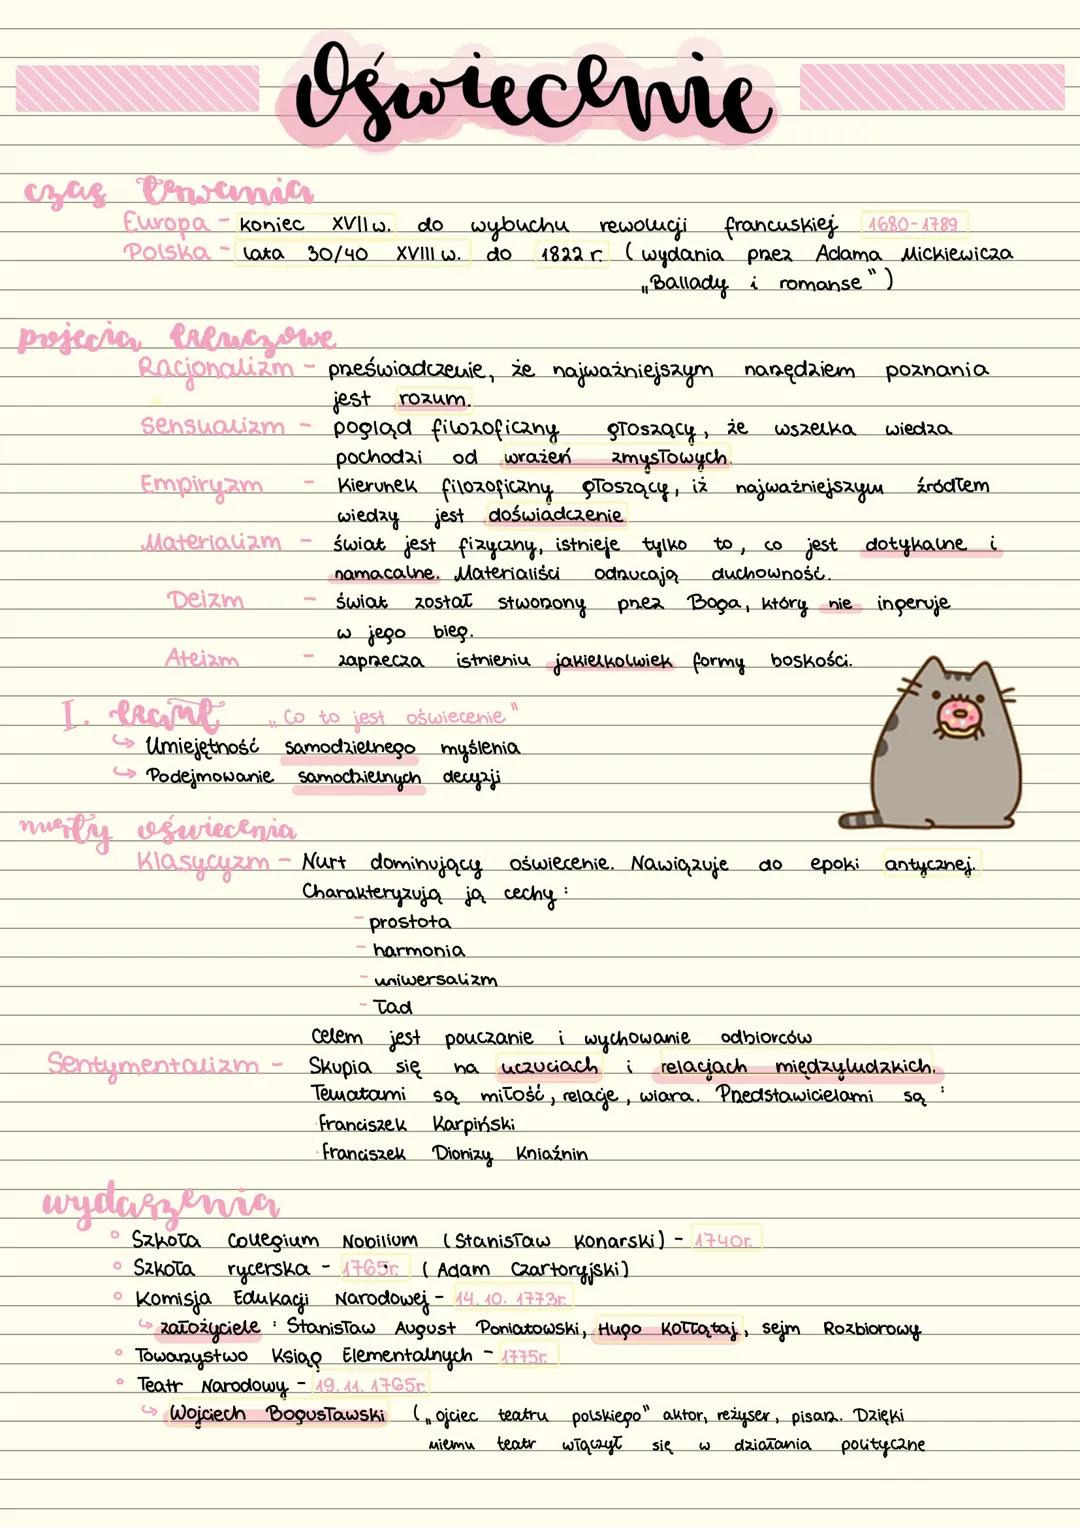 Oświecenie
czas trwania
Europa - koniec XVII w. do wybuchu rewolucji francuskiej 1680-1789
Polska - lata 30/40 XVIII w. do 1822 r. (wydania przez Adama Mickiewicza
„Ballady i romanse")
pojęcia kluczowe
Racjonalizm - przeświadczenie, że najważniejszym narzędziem poznania
jest rozum.
Sensualizm - pogląd filozoficzny głoszący, że wszelka wiedza
pochodzi od wrażeń zmysłowych.
Empiryzm - Kierunek filozoficzny głoszący, iż najważniejszym źródłem
wiedzy jest doświadczenie.
Materializm - świat jest fizyczny, istnieje tylko to, co jest dotykalne i
namacalne. Materialiści odrzucają duchowność.
Deizm - świat został stworzony przez Boga, który nie ingeruje
w jego bieg.
Ateizm - zaprzecza istnieniu jakiejkolwiek formy boskości.
I. Kant „Co to jest oświecenie"
↳ Umiejętność samodzielnego myślenia
↳ Podejmowanie samodzielnych decyzji
nurty oświecenia
Klasycyzm - Nurt dominujący oświecenie. Nawiązuje do epoki antycznej.
Charakteryzują ją cechy:
- prostota
- harmonia
- uniwersalizm
- ład
Celem jest pouczanie i wychowanie odbiorców
Sentymentalizm - Skupia się na uczuciach i relacjach międzyludzkich.
Tematami są miłość, relacje, wiara. Przedstawicielami są:
· Franciszek Karpiński
· Franciszek Dionizy Kniaźnin
wydarzenia
° Szkoła Collegium Nobilium (Stanisław Konarski) - 1740r.
° Szkoła rycerska - 1765r. (Adam Czartoryjski)
° Komisja Edukacji Narodowej - 14.10.1773r.
↳ założyciele: Stanisław August Poniatowski, Hugo Kołłątaj, sejm Rozbiorowy
° Towarzystwo Ksiąg Elementalnych - 1775r.
° Teatr Narodowy - 19.11.1765r.
↳ Wojciech Bogusławski („ojciec teatru polskiego" aktor, reżyser, pisarz. Dzięki
niemu teatr włączył się w działania polityczne